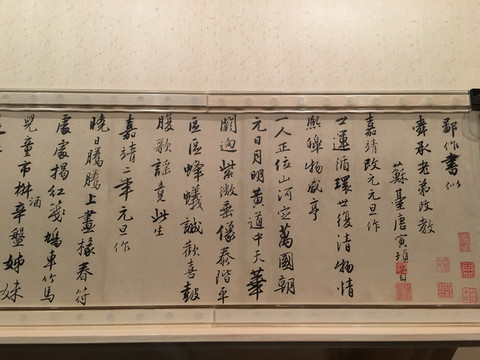 鄙作書似
舜承老弟改教
蘇臺唐寅頓首
嘉靖改元元旦作
世運循環世復清物情
熙皞物咸亨
一人正位山河定萬國朝
元日月明黃道中天華
闢迥紫微垂像泰階平
區區蜂蟻誠歡喜鼓
腹歌謠竟此生
嘉靖二年元旦作
曉日騰騰上畫椽春符
處處揭紅箋鳩車竹馬
兒童市椒酒辛盤姊妹